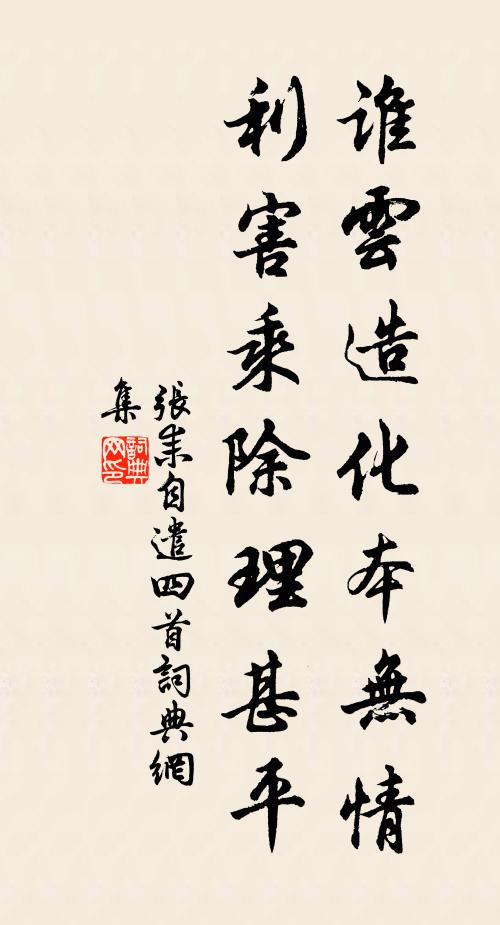 誰雲造化本無情
利害乘除理甚平
張耒自遣四首詞典網
集
詞典網印